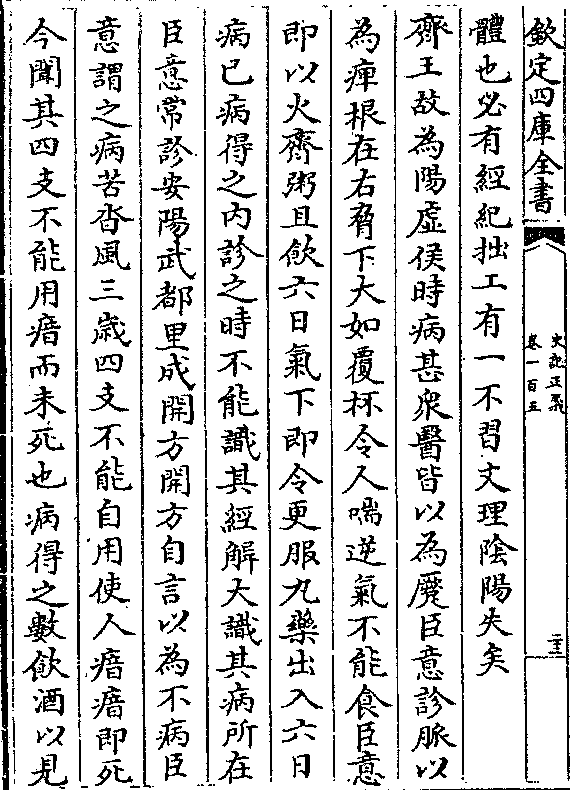 欽定四庫全書
史記正義
卷一百五
體也必有經紀拙工有一不習文理陰陽失矣
齊王故為陽虚侯時病甚衆醫皆以為蹷臣意診脈以
為痺根在右脅下大如覆杯令人喘逆氣不能食臣意
即以火齊粥且飲六日氣下即令更服丸藥出入六日
病已病得之内診之時不能識其經解大識其病所在
臣意常診安陽武都里成開方開方自言以為不病臣
意謂之病苦沓風三歲四支不能自用使人瘖瘖即死
今聞其四支不能用瘖而未死也病得之數飲酒以見